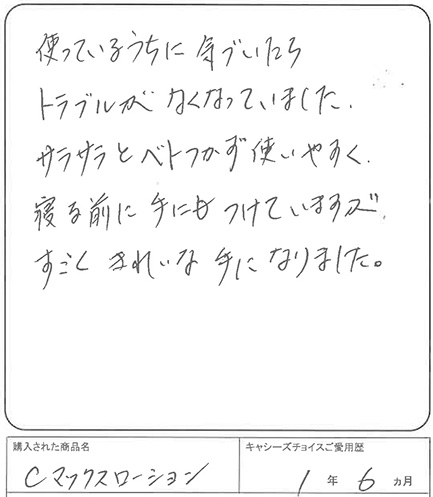 使っているうちに 気づいたら
トラブルが なくなっていました.
サラサラと ベトつかず 使いやすく.
寝る前に 手にも つけていますが.
すごく きれいな 手になりました。
購入された商品名
キャシーズチョイスご愛用歴
Cマックスローション
1 年 6 ヵ月